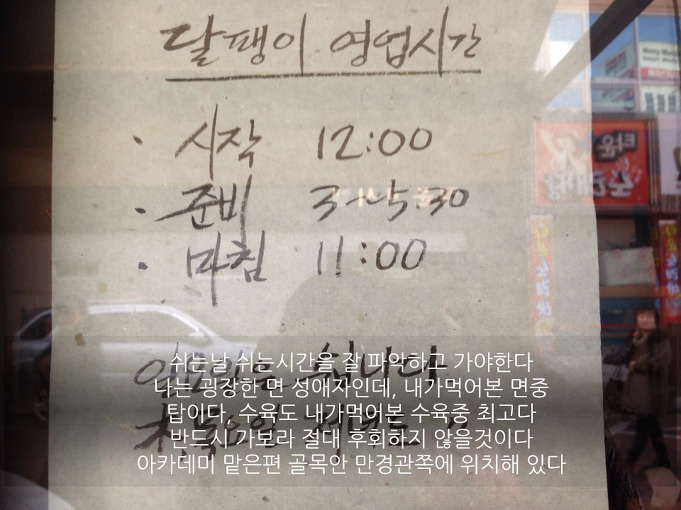 달팽이 영업시간
· 시작 12:00
· 준비 3~5:30
· 마침 11:00
쉽니다
쉬는날 쉬는시간을 잘 파악하고 가야한다
나는 굉장한 면 성애자인데, 내가먹어본 면중
탑이다. 수육도 내가먹어본 수육중 최고다
반드시 가보라 절대 후회하지 않을것이다
아카데미 맡은편 골목안 만경관쪽에 위치해 있다